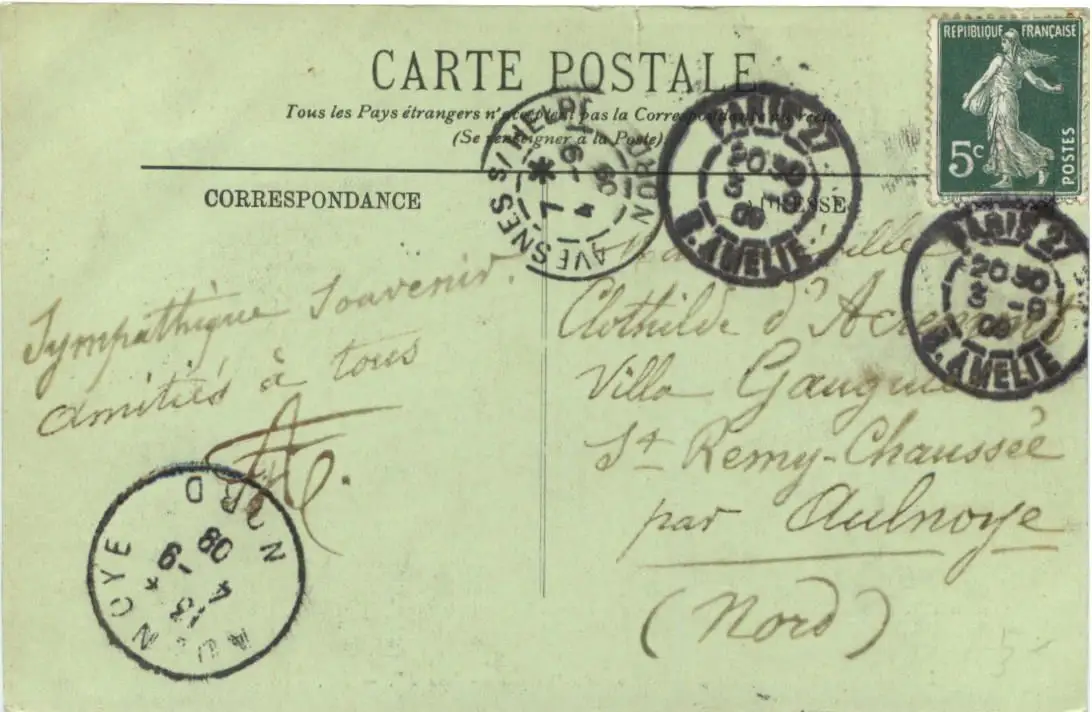 CARTE POSTALE
Tous les Pays étrangers n'acceptent pas la Correspondance au recto.
(Se renseigner à la Poste)
CORRESPONDANCE
ADRESSE
REPUBLIQUE FRANÇAISE
5c
POSTES
PARIS 27
20 30
3 -9
09
R. AMELIE
PARIS 27
20 30
3 -9
09
R. AMELIE
AVESNES S/ HELPE
NORD
4 -9
09
Sympathique Souvenir.
Amitiés à tous
Clothilde d'
Villa
St Remy-Chaussée
par Aulnoye
(Nord)
AULNOYE
NORD
13
4 -9
09